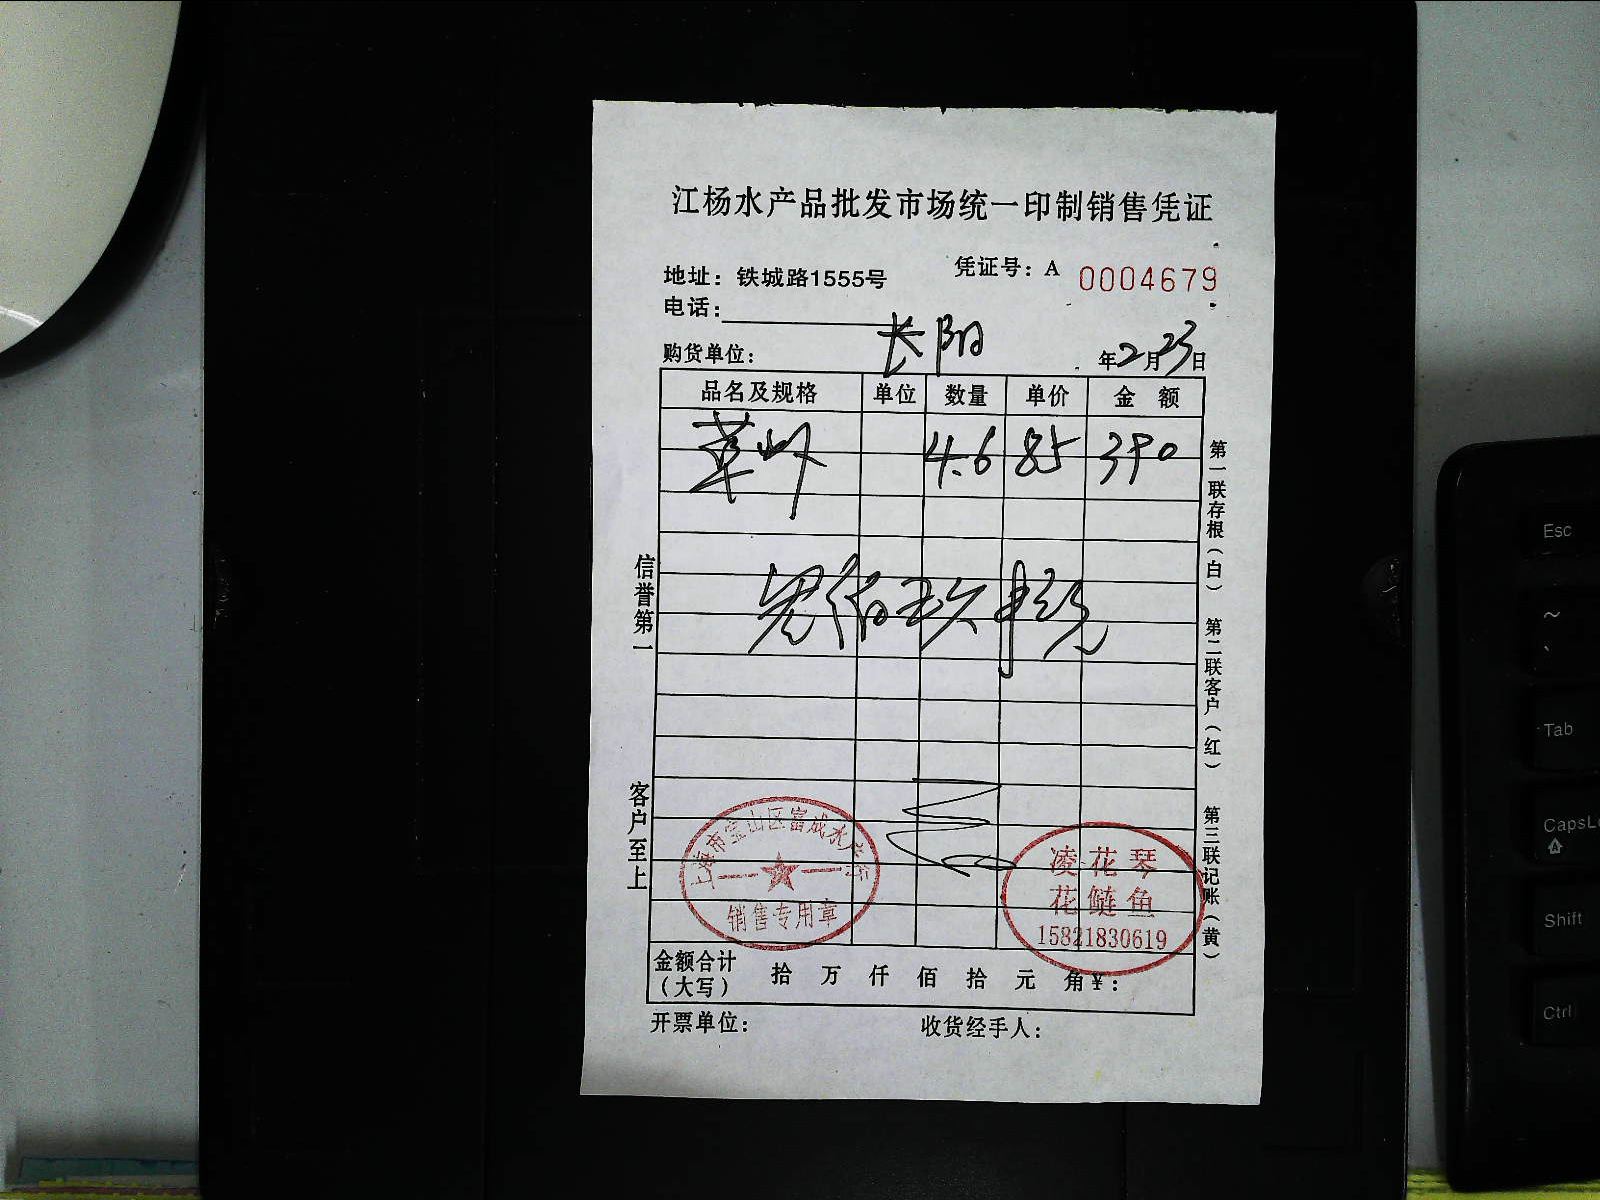 江杨水产品批发市场统一印制销售凭证
地址：铁城路1555号 凭证号：A 0004679
电话：
购货单位： 长阳 年2月23日
品名及规格 单位 数量 单价 金额
草虾 4.6 85 390
信誉第一
客户至上
上海市宝山区富成水产行
销售专用章
凌花琴
花鲢鱼
15821830619
金额合计（大写） 拾 万 仟 佰 拾 元 角 ¥：
开票单位： 收货经手人：
第一联存根（白） 第二联客户（红） 第三联记账（黄）
Esc
~
Tab
CapsLo
Shift
Ctrl